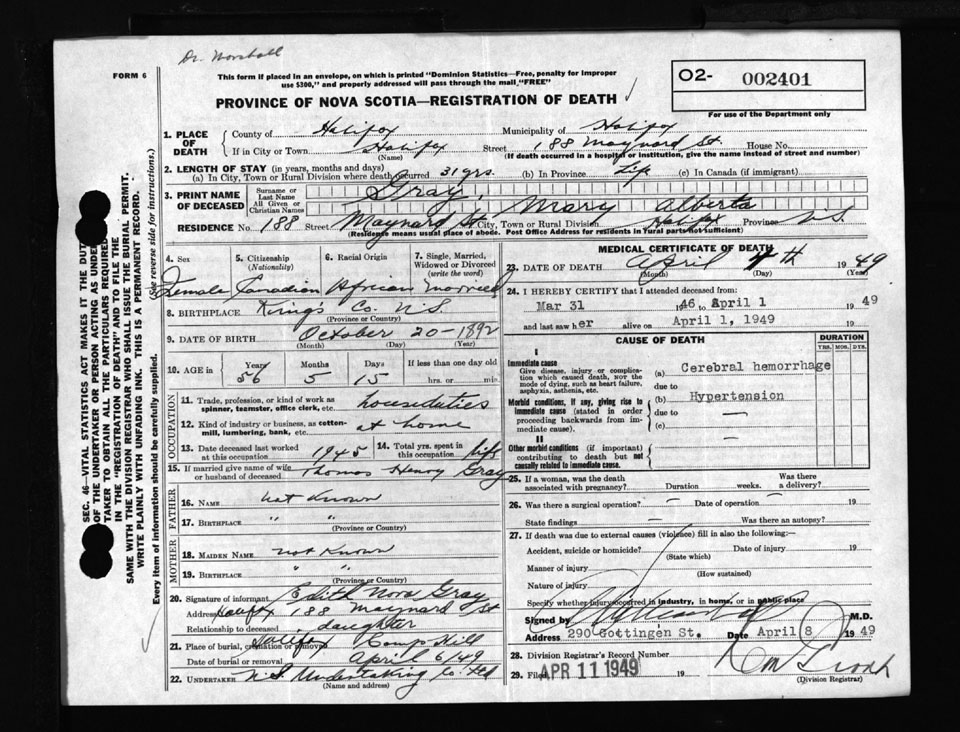 Dr. Marshall
FORM 6
This form if placed in an envelope, on which is printed "Dominion Statistics—Free, penalty for improper
use $300," and properly addressed will pass through the mail "FREE"
O2- 002401
For use of the Department only
PROVINCE OF NOVA SCOTIA—REGISTRATION OF DEATH
1. PLACE OF DEATH
County of Halifax Municipality of Halifax
If in City or Town Halifax Street 188 Maynard St. House No.
(Name) (If death occurred in a hospital or institution, give the name instead of street and number)
2. LENGTH OF STAY (in years, months and days)
(a) In City, Town or Rural Division where death occurred 31 yrs. (b) In Province Life (c) In Canada (if immigrant)
3. PRINT NAME OF DECEASED
Surname or Last Name Gray,
All Given or Christian Names Mary Alberta
RESIDENCE No. 188 Street Maynard St City, Town or Rural Division Halifax Province N.S.
(Residence means usual place of abode. Post Office Address for residents in rural parts not sufficient)
4. Sex 5. Citizenship (Nationality) 6. Racial Origin 7. Single, Married, Widowed or Divorced (write the word)
Female Canadian African married
8. BIRTHPLACE King's Co. N.S.
(Province or Country)
9. DATE OF BIRTH October 20 - 1892
(Month) (Day) (Year)
10. AGE in Years Months Days If less than one day old
56 5 15 hrs. or min.
OCCUPATION
11. Trade, profession, or kind of work as spinner, teamster, office clerk, etc. houseduties
12. Kind of industry or business, as cotton-mill, lumbering, bank, etc. at home
13. Date deceased last worked at this occupation 1945 14. Total yrs. spent in this occupation life
15. If married give name of wife or husband of deceased Thomas Henry Gray
FATHER
16. NAME not known
17. BIRTHPLACE " "
(Province or Country)
MOTHER
18. MAIDEN NAME not known
19. BIRTHPLACE " "
(Province or Country)
20. Signature of informant Edith Nora Gray
Address Halifax 188 Maynard St
Relationship to deceased daughter
21. Place of burial, cremation or removal Halifax Camp Hill
Date of burial or removal April 6/49
22. UNDERTAKER N.S. Undertaking Co. Ltd
(Name and address)
MEDICAL CERTIFICATE OF DEATH
23. DATE OF DEATH April 4th 1949
(Month) (Day) (Year)
24. I HEREBY CERTIFY that I attended deceased from:
Mar 31 46 to April 1 1949
and last saw her alive on April 1, 1949 19
CAUSE OF DEATH
DURATION
YRS. MOS. DYS.
I
Immediate cause
Give disease, injury or complication which caused death, not the mode of dying, such as heart failure, asphyxia, asthenia, etc.
(a) Cerebral hemorrhage
due to
Morbid conditions, if any, giving rise to immediate cause (stated in order proceeding backwards from immediate cause).
(b) Hypertension
due to —
(c)
II
Other morbid conditions (if important) contributing to death but not causally related to immediate cause. —
25. If a woman, was the death associated with pregnancy? Duration weeks. Was there a delivery?
26. Was there a surgical operation? — Date of operation —
State findings — Was there an autopsy?
27. If death was due to external causes (violence) fill in also the following:—
Accident, suicide or homicide? Date of injury 19
(State which)
Manner of injury
(How sustained)
Nature of injury
Specify whether injury occurred in industry, in home, or in public place
Signed by M.D.
Address 290 Gottingen St. Date April 8 1949
28. Division Registrar's Record Number
29. Filed APR 11 1949 19
(Division Registrar)
SEC. 46—VITAL STATISTICS ACT MAKES IT THE DUTY
OF THE UNDERTAKER OR PERSON ACTING AS UNDER-
TAKER TO OBTAIN ALL THE PARTICULARS REQUIRED
IN THE "REGISTRATION OF DEATH" AND TO FILE THE
SAME WITH THE DIVISION REGISTRAR WHO SHALL ISSUE THE BURIAL PERMIT.
WRITE PLAINLY WITH UNFADING INK. THIS IS A PERMANENT RECORD.
Every item of information should be carefully supplied. (See reverse side for instructions.)